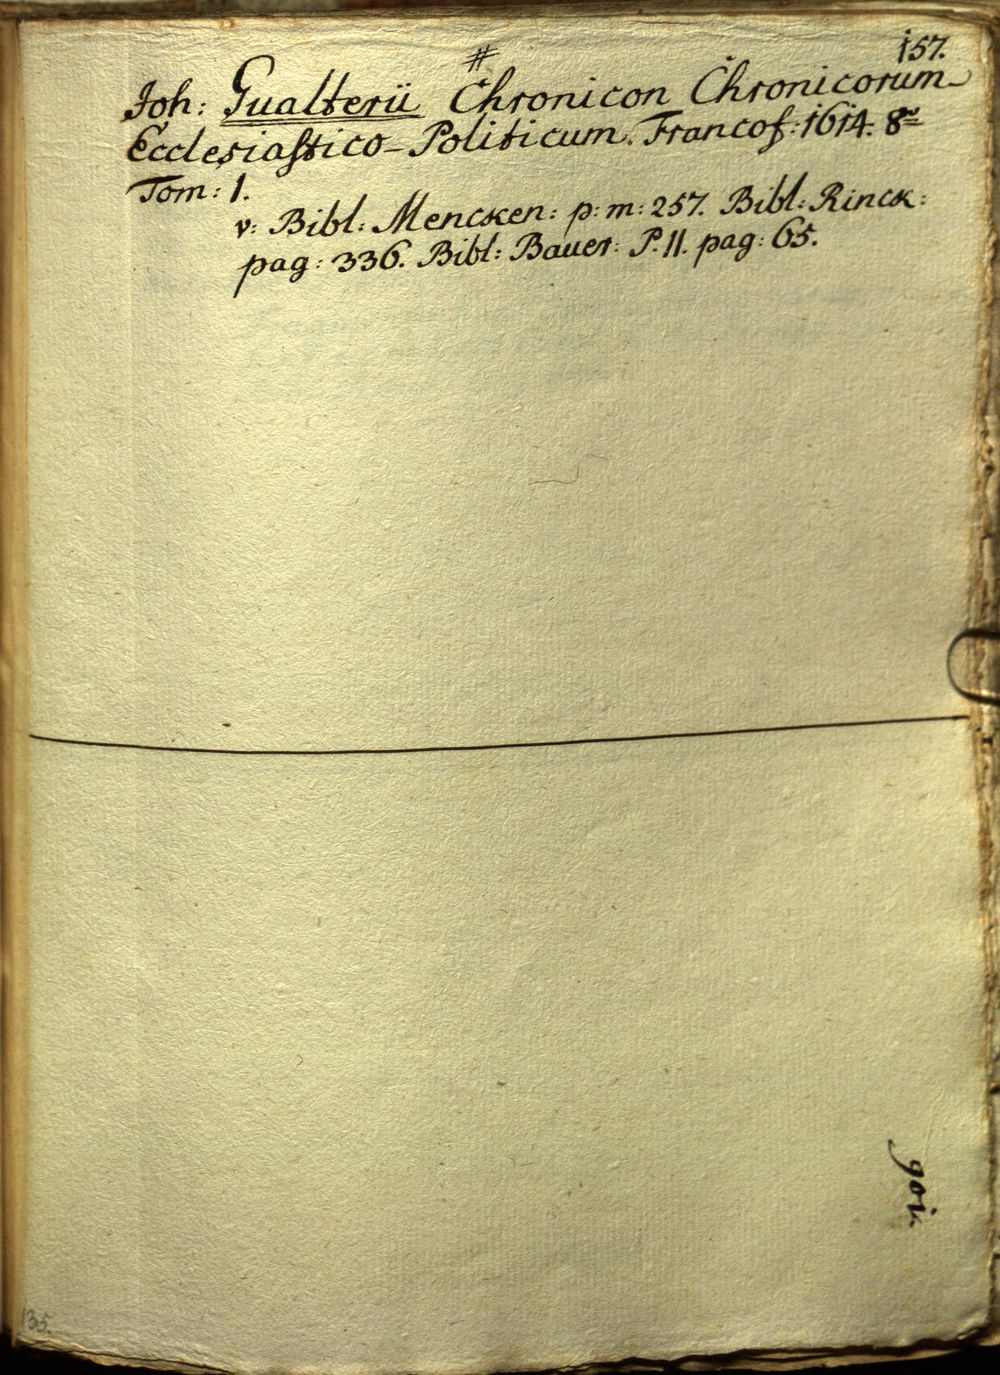 157.
#
Joh: Gualterii Chronicon Chronicorum
Ecclesiastico-Politicum. Francof: 1614. 8°
Tom: 1.
v: Bibl: Mencken: p: m: 257. Bibl: Rinck:
pag: 336. Bibl: Bauer: P. 11. pag: 65.
goi.
135.